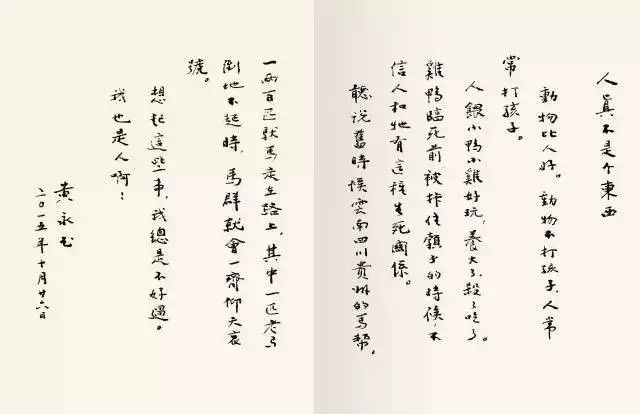 人眞不是个東西
動物比人好。動物不打孩子、人常
常打孩子。
人餵小鴨小雞好玩,養大了殺了吃了。
雞鴨臨死前被拤住頸子的時候,不
信人和牠有這種生死關係。
聽说舊時候雲南四川貴州的馬幫,
一兩百匹馱馬走在路上,其中一匹老了
倒地不起時,馬群就會一齊仰天哀
號。
想起這些事,我總是不好過。
我也是人啊!
黃永玉
二〇一五年十月廿六日